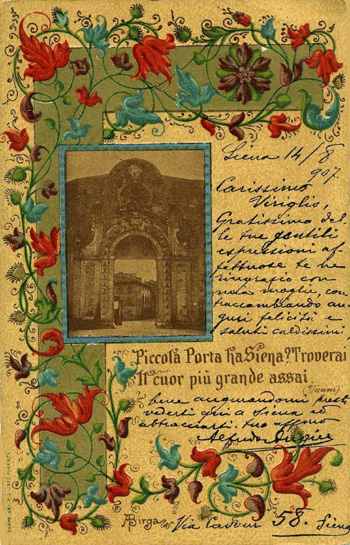 Siena 14/8
907.
Carissimo
Virgilio,
Gratissimo del
le tue gentili
espressioni af
fettuose te ne
ringrazio con
mia moglie, con
traccambiando au
guri felicità e
saluti caldissimi.
Piccola Porta ha Siena? Troverai
Il cuor più grande assai
bene augurandomi presto
vederti qui a Siena ed
abbracciarti. Tuo affmo
Alfredo
ABirga
Via Cavour 58. Siena